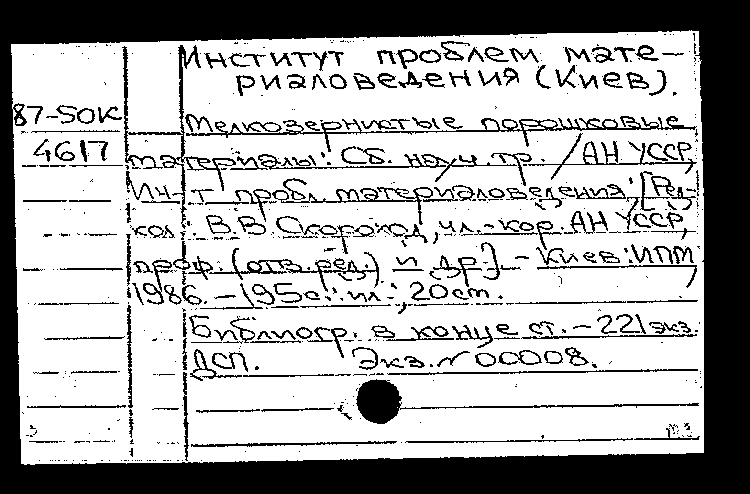 Институт проблем мате-
риаловедения (Киев).
87-50К
4617
Мелкозернистые порошковые
материалы: Сб. науч. тр. / АН УССР,
Ин-т пробл. материаловедения; [Ред-
кол.: В.В. Скороход, чл.-кор. АН УССР,
проф. (отв. ред.) и др.] - Киев: ИПМ,
1986. - 195с.: ил.; 20 см.
Библиогр. в конце ст. - 221 экз.
ДСП. Экз. № 00008.